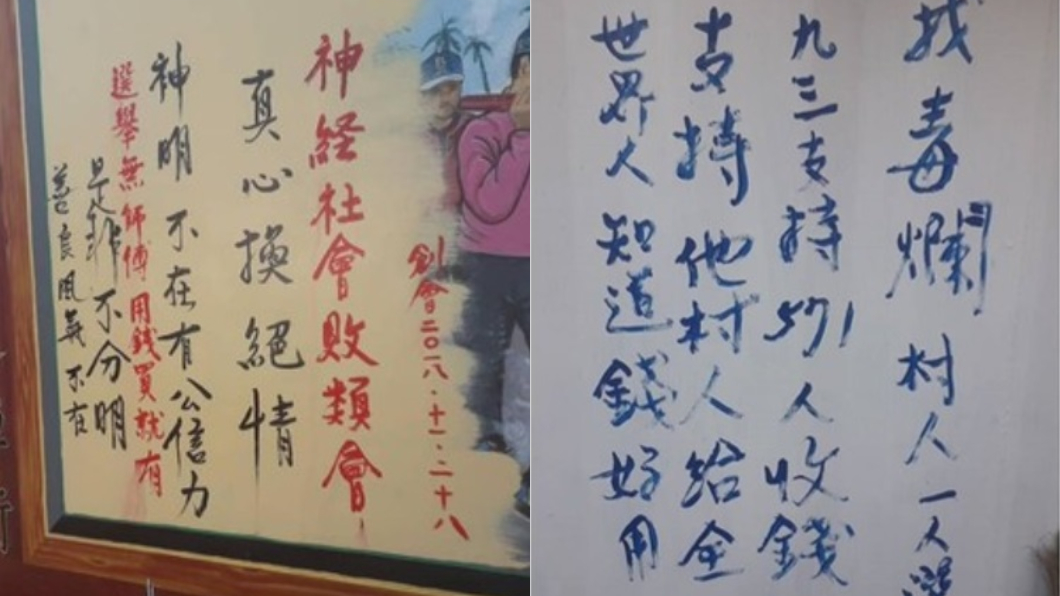 創會二〇一八.十一.二十八
神経社會敗類會
真心換絕情
神明不在有公信力
選舉無師傅用錢買就有
是非不分明
善良風 不在
毒爛村人一人選
九三支持571人收錢
支持他村人給全
世界人知道錢好用